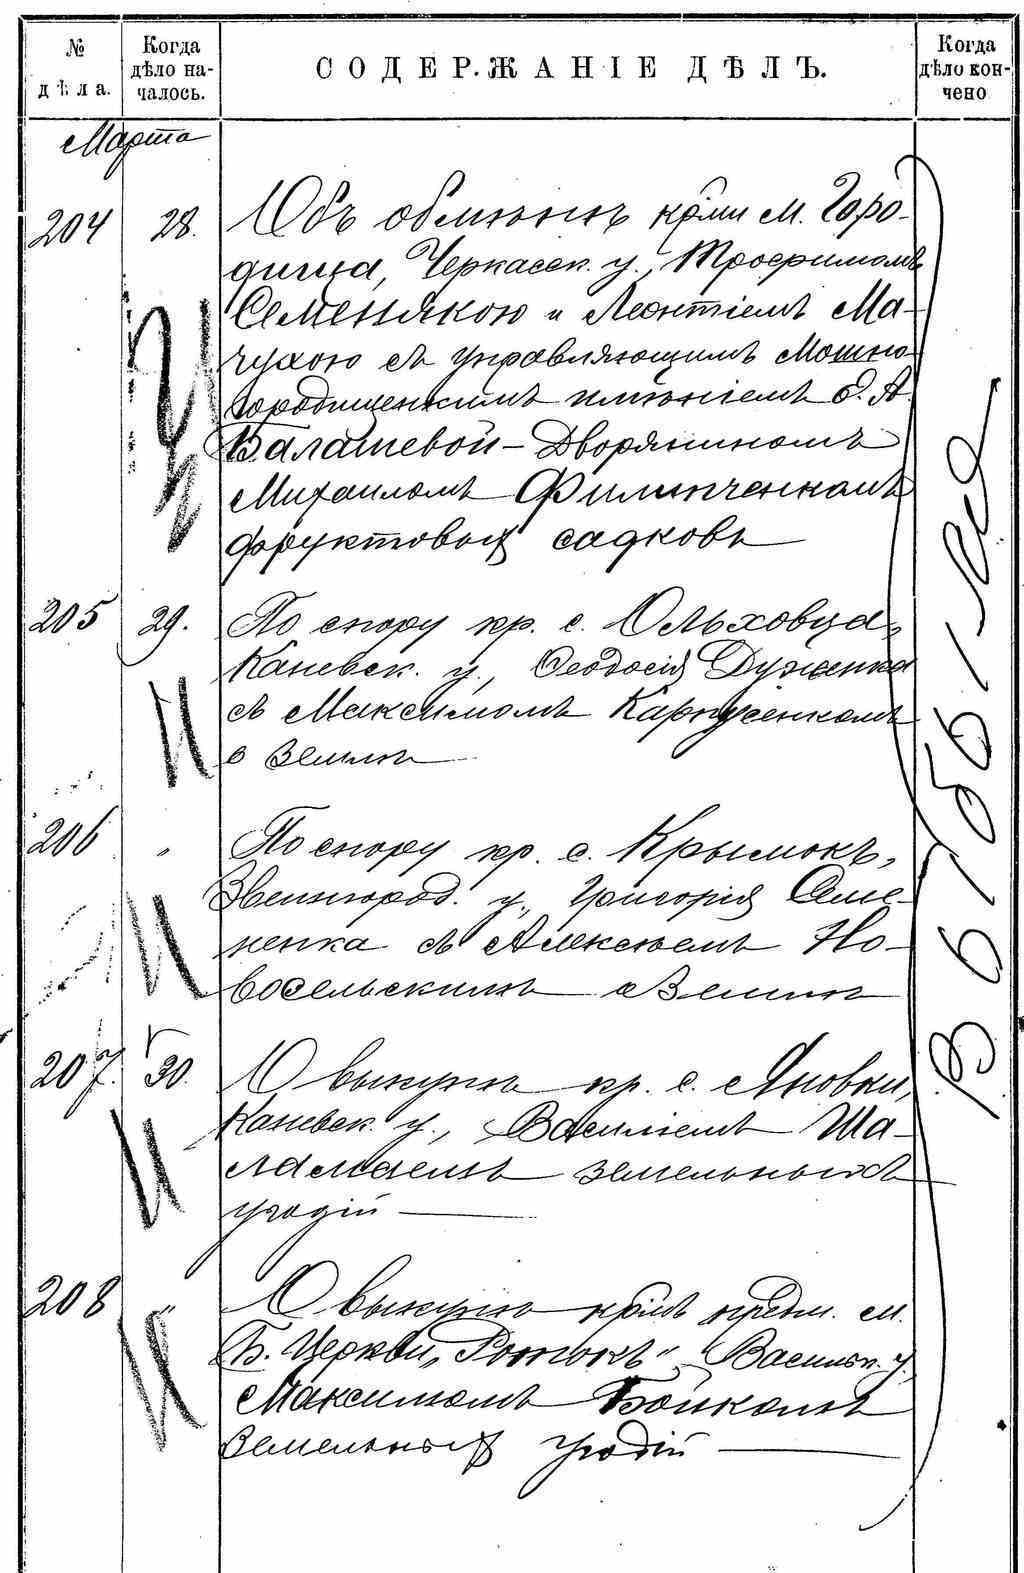 № дѣла.
Когда дѣло началось.
СОДЕРЖАНІЕ ДѢЛЪ.
Когда дѣло кончено
Марта
204 28. Объ обмѣнѣ кр̃ми м. Горо-
дища, Черкасск. у., Трофимомъ
Семенякою и Леонтіемъ Ма-
чухою съ управляющимъ Мошно-
городищенскимъ имѣніемъ Е. А.
Балашевой – Дворяниномъ
Михаиломъ Филипченкомъ
фруктовыхъ садковъ
205 29. По спору кр. с. Ольховца,
Каневск. у., Ѳеодосія Дуженка
съ Максимомъ Карпусенкомъ
о землѣ
206 „ По спору кр. с. Крымокъ,
Звенигород. у., Григорія Семе-
ненка съ Алексѣемъ Но-
восельскимъ о землѣ
207. 30. О выкупѣ кр. с. Яновки,
Каневск. у., Василіемъ Ша-
ламаемъ земельныхъ
угодій
208 „ О выкупѣ кр̃мъ предм. м.
Б. Церкви „Ротокъ“ Васильк. у.
Максимомъ Бойкомъ
земельныхъ угодій